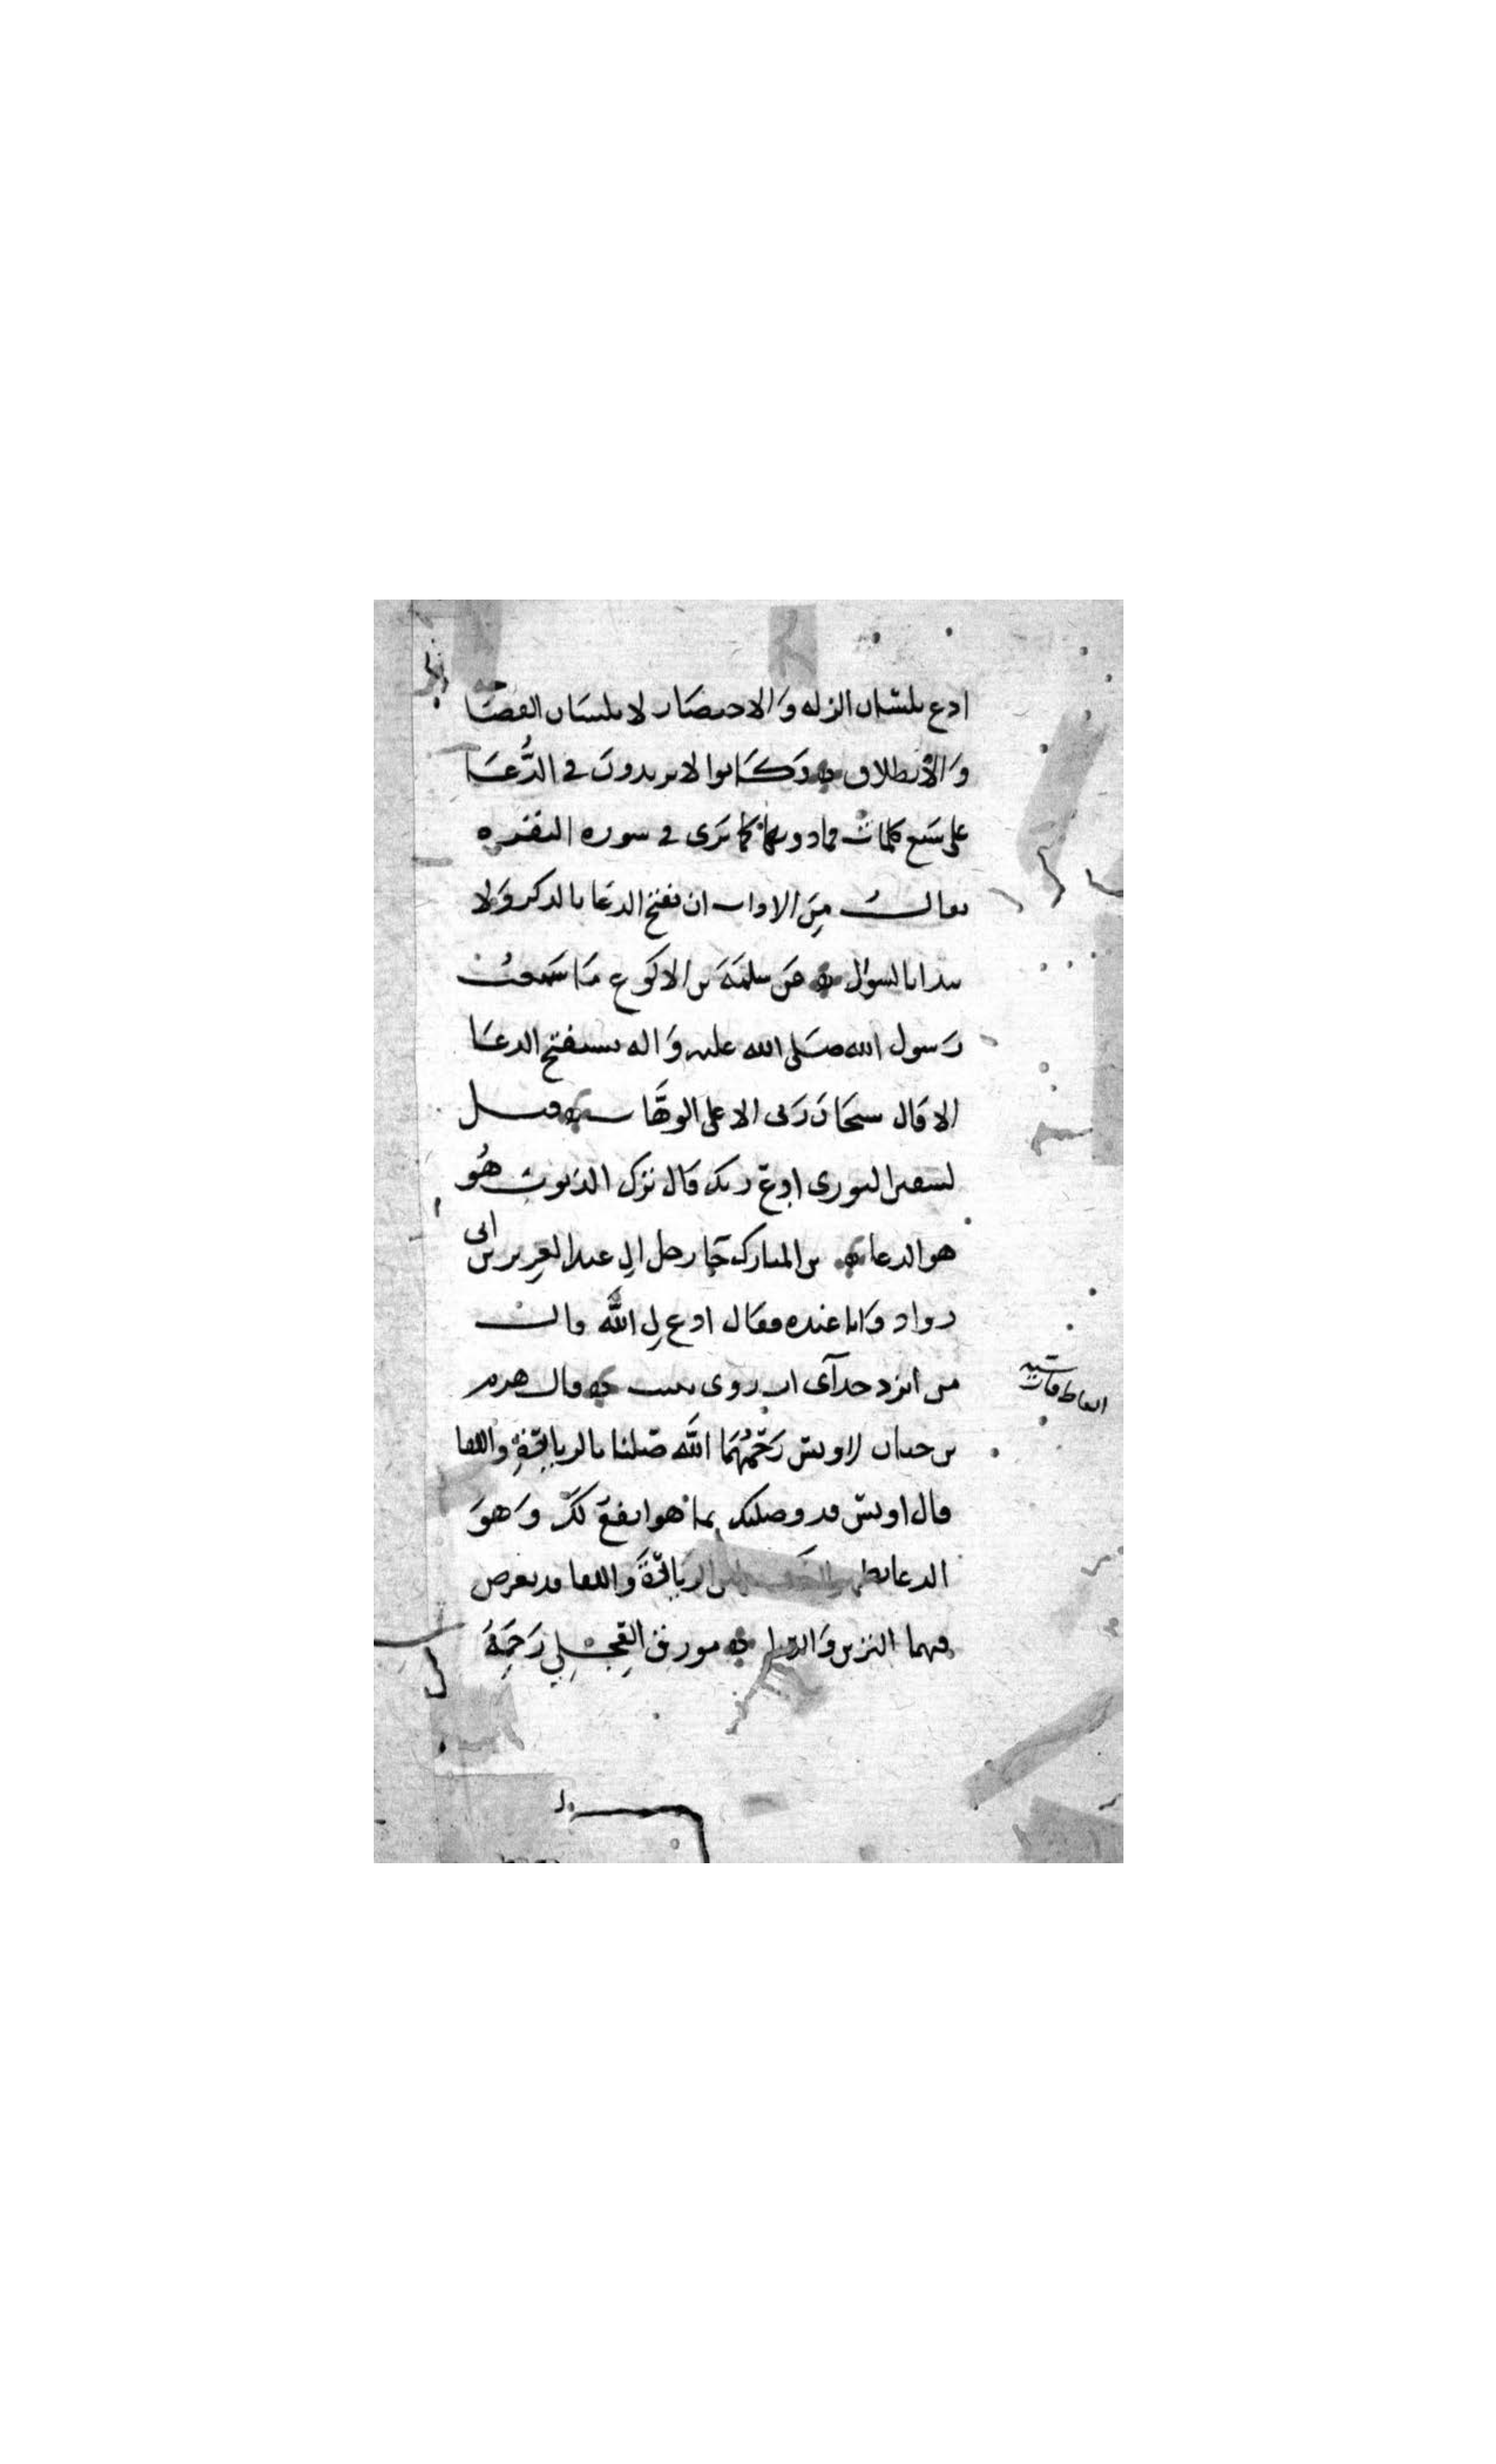 ادع بلسان الذله والاحتصار لا بلسان الفصاحه
والانطلاق وكانوا لا يزيدون في الدُّعا
على سبع كلمات فما دونها كما ترى في سورة البقره
يقال من الاداب ان تفتح الدعا بالذكر ولا
تبدا بالسوال عن سلمة بن الاكوع ما سمعت
رسول الله صلى الله عليه واله يستفتح الدعا
الا قال سبحان ربى الاعلى الوهاب قيل
لسفين الثورى ادع ربك قال ترك الذنوب هو
هو الدعا بن المبارك جا رجل الى عبد العزيز بن ابى
رواد وانا عنده فقال ادع لي الله قال
من حداى اب روى وقال هرم
بن حيان لاويس رحمهما الله صلنا بالزيارة واللقا
قال اويس قد وصلتك بما هو انفع لك وهو
الدعا بظهر الزيارة واللقا قد يعرض
فيهما التزين والريا مورق العجلي رحمه